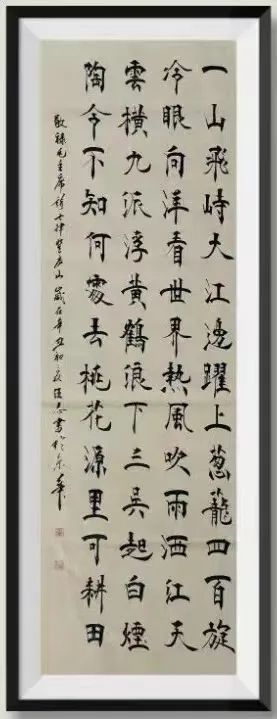 一山飛峙大江邊躍上葱蘢四百旋
冷眼向洋看世界熱風吹雨洒江天
雲橫九派浮黄鶴浪下三吳起白煙
陶令不知何處去桃花源里可耕田
敬録毛主席詩七律登庐山歲在辛丑初夏志書於京華